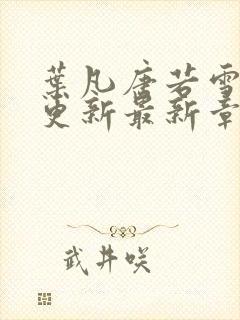 葉凡唐若雪
更新最新章
武井咲